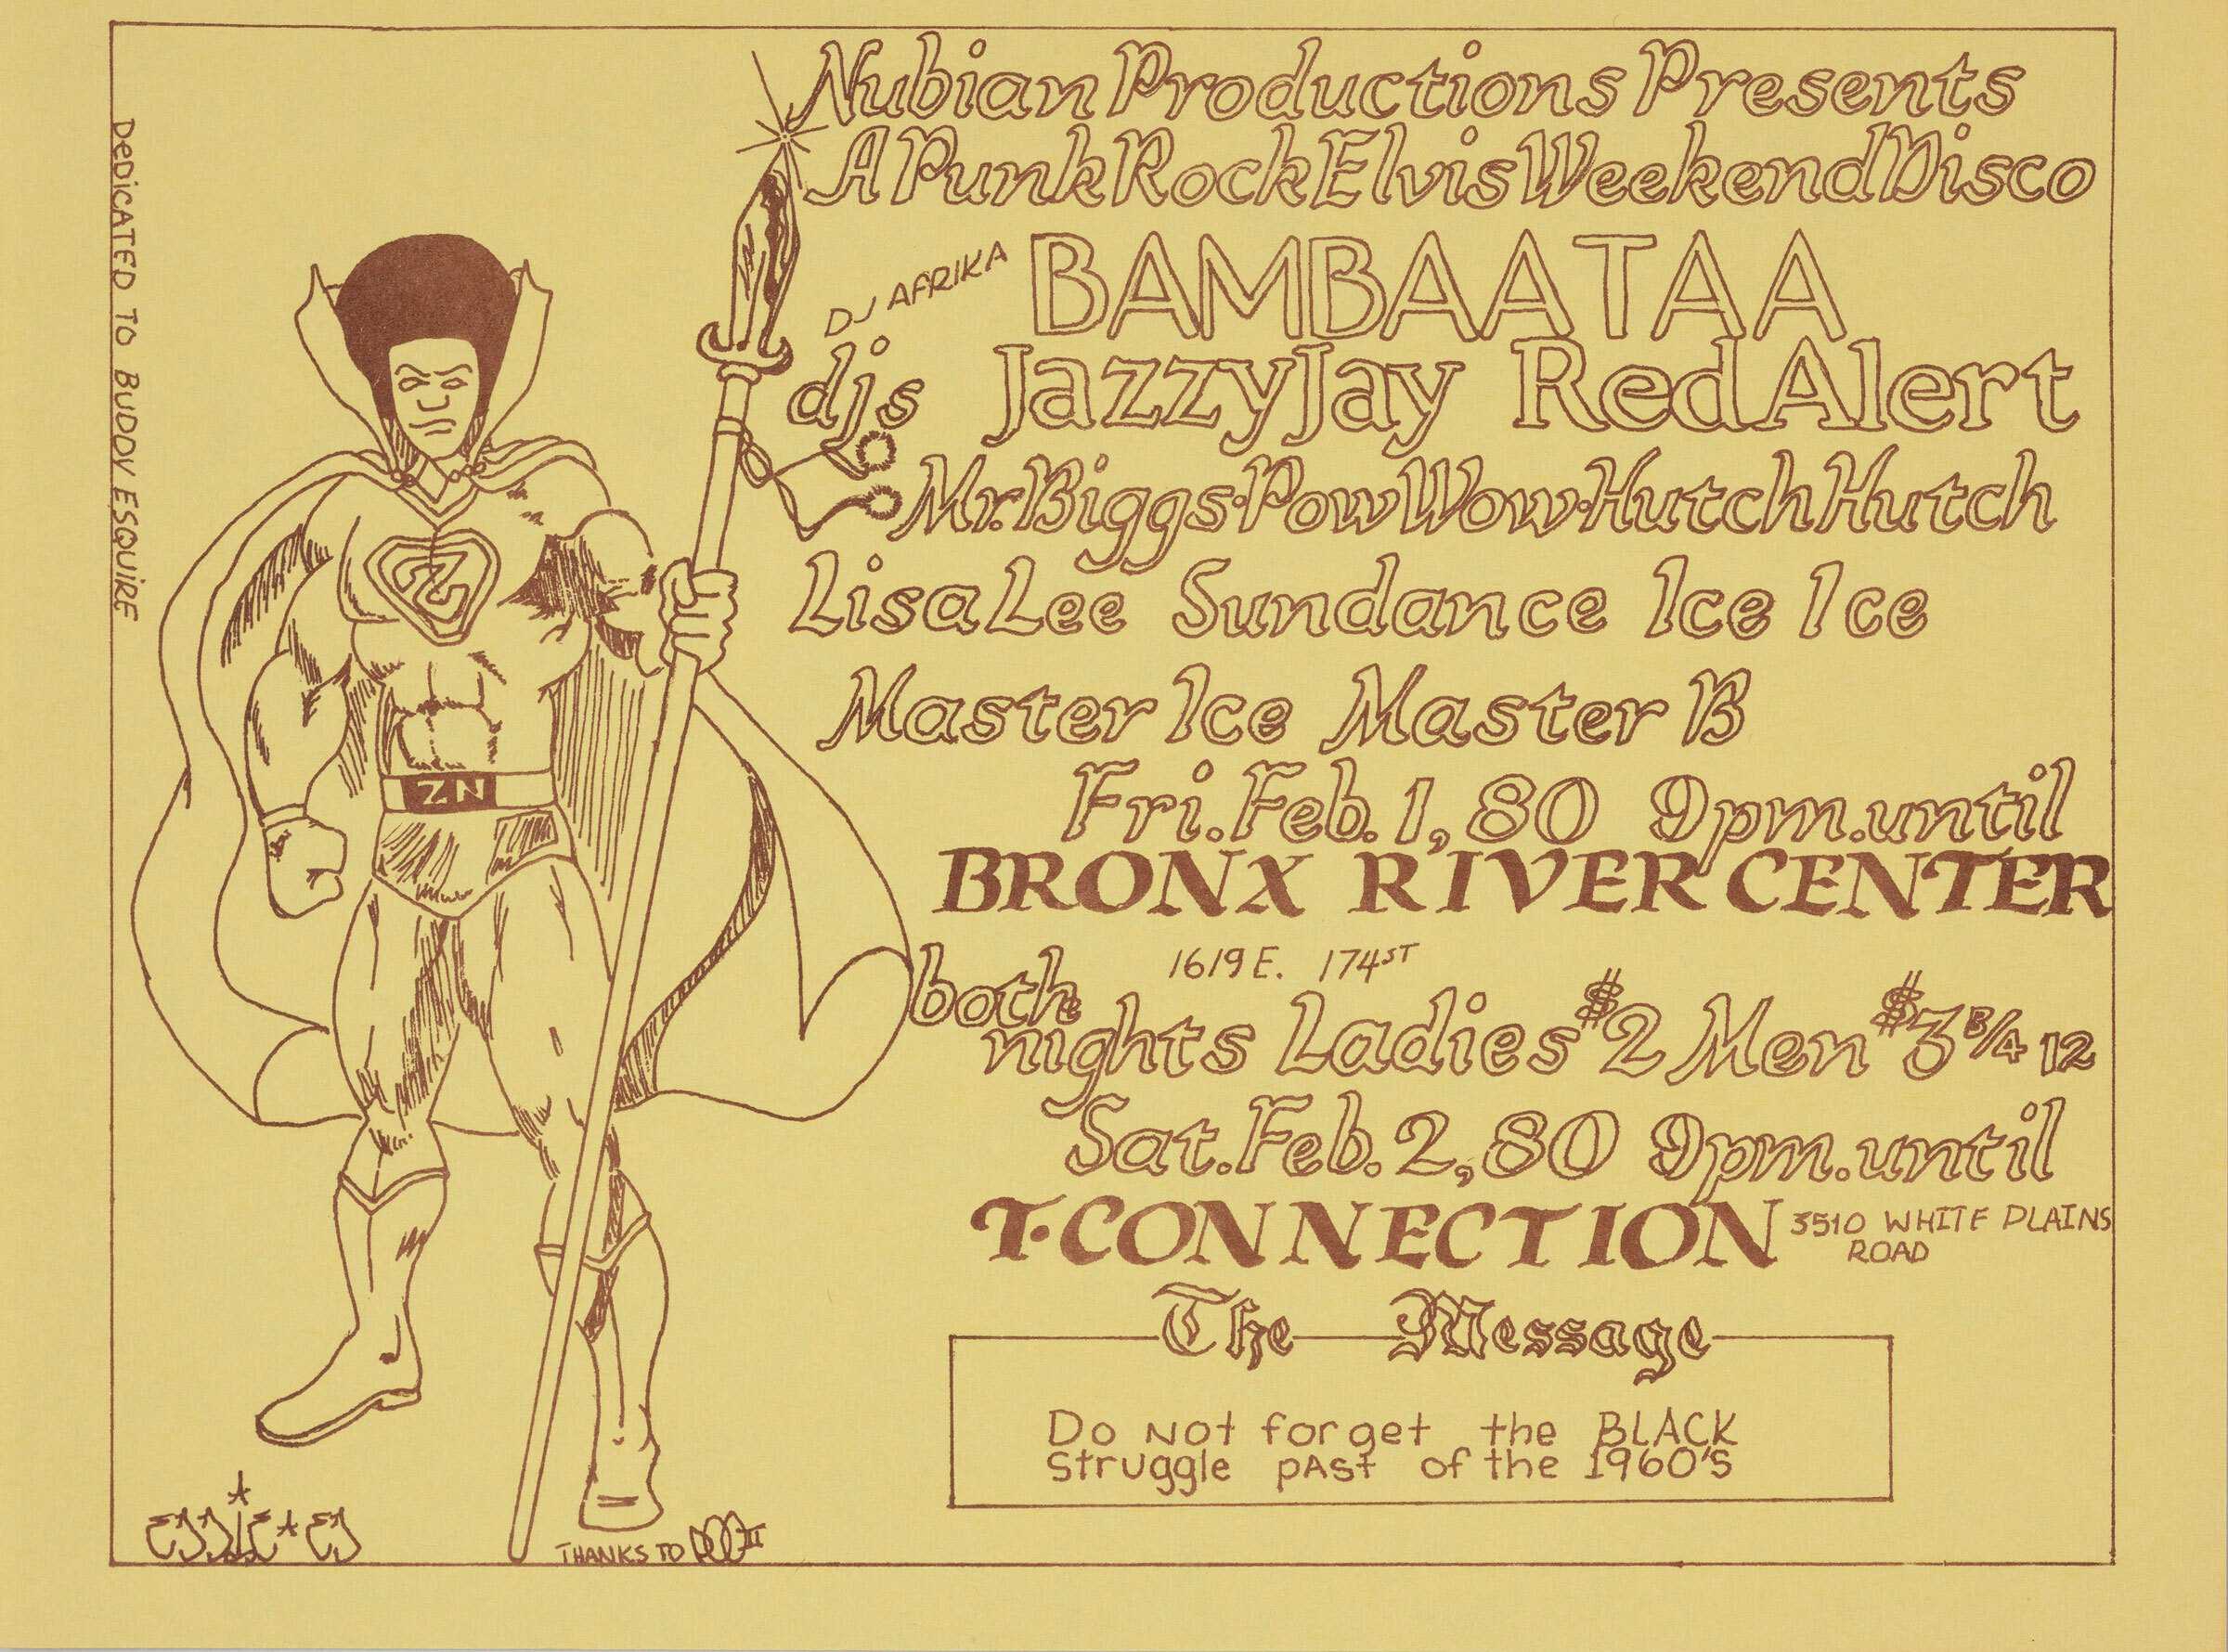 Nubian Productions Presents
A Punk Rock Elvis Weekend Disco
DJ AFRIKA BAMBAATAA
djs Jazzy Jay Red Alert
Mr. Biggs · Pow Wow · Hutch Hutch
Lisa Lee Sundance Ice Ice
Master Ice Master B
Fri. Feb. 1, 80 9pm. until
BRONX RIVER CENTER
1619 E. 174ST
both nights Ladies $2 Men $3 B/4 12
Sat. Feb. 2, 80 9pm. until
T·CONNECTION 3510 WHITE PLAINS
ROAD
The Message
Do Not forget the BLACK
struggle pAst of the 1960'S
DEDICATED TO BUDDY ESQUIRE
Z
ZN
THANKS TO